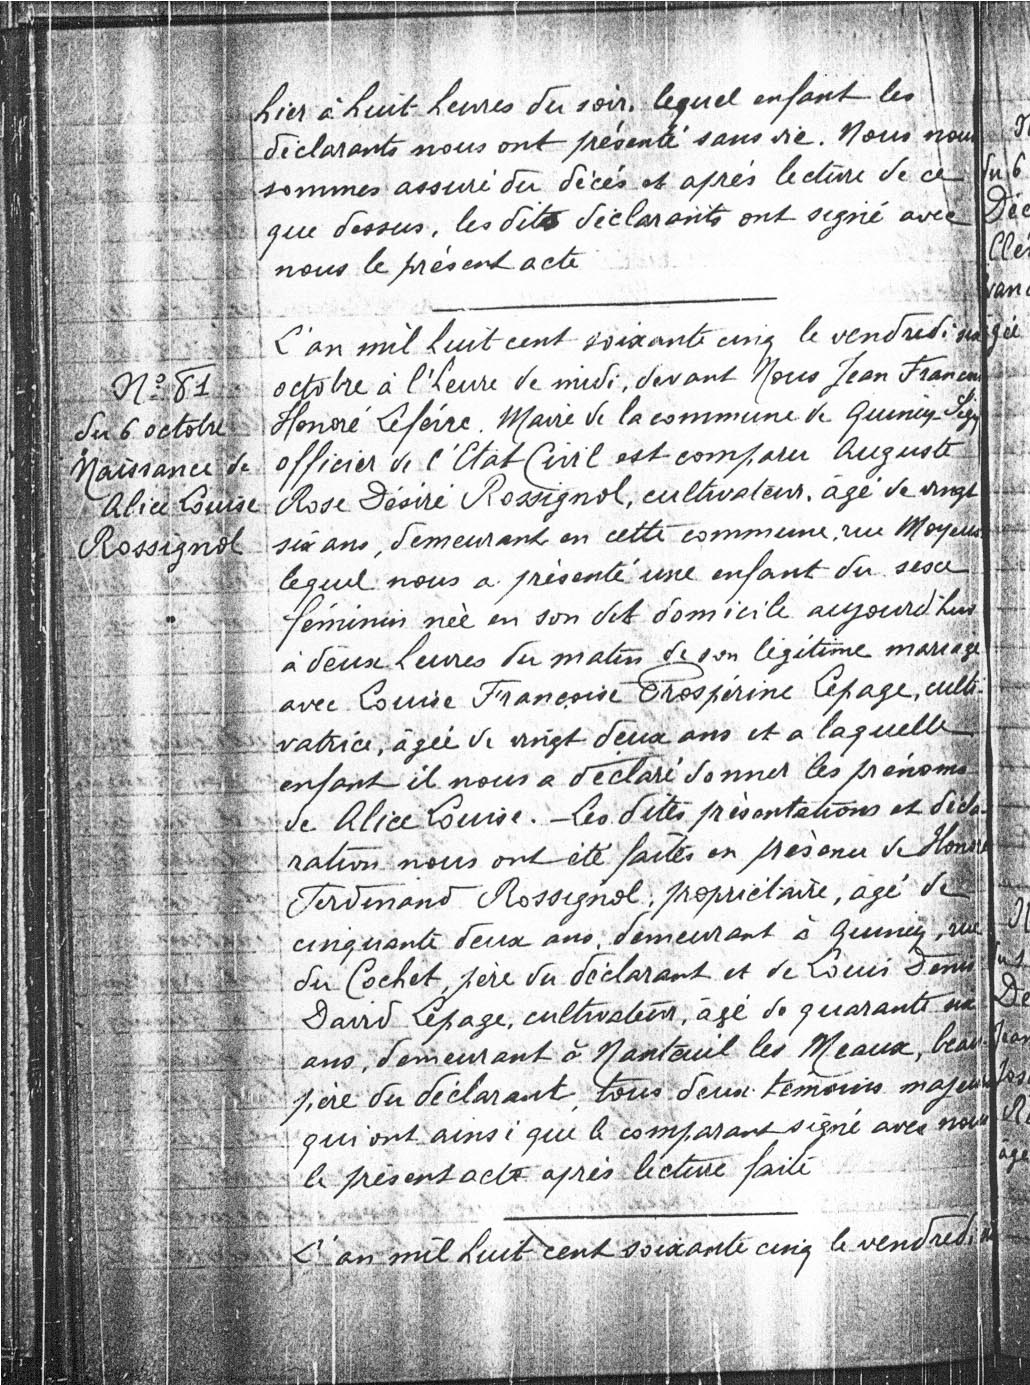 hier à huit heures du soir, lequel enfant les
déclarants nous ont présenté sans vie. Nous nous
sommes assuré du décés et aprés lecture de ce
que dessus, les dits déclarants ont signé avec
nous le présent acte
L'an mil huit cent soixante cinq le vendredi six
octobre à l'heure de midi, devant Nous Jean Francois
Honoré Lefévre. Maire de la commune de Quincy Ségy
officier de l'Etat Civil est comparu Auguste
Rose Désiré Rossignol, cultivateur, âgé de vingt
six ans, demeurant en cette commune, rue
lequel nous a présenté une enfant du sexe
féminin née en son dit domicile aujourd'hui
à deux heures du matin de son légitime mariage
avec Louise Françoise Prospérine Lepage, culti-
vatrice, âgée de vingt deux ans et a laquelle
enfant il nous a déclaré donner les prénoms
de Alice Louise. - Les dites présentations et décla-
ration nous ont été faites en présence de Honoré
Ferdinand Rossignol, propriétaire, âgé de
cinquante deux ans, demeurant à Quincy, rue
du Cochet, père du déclarant et de Louis Denis
David Lepage, cultivateur, âgé de quarante six
ans, demeurant à Nanteuil les Meaux, beau-
père du déclarant, tous deux témoins majeurs
qui ont ainsi que le comparant signé avec nous
le présent acte aprés lecture faite
L'an mil huit cent soixante cinq le vendredi
No 81
du 6 octobre
Naissance de
Alice Louise
Rossignol
du 6